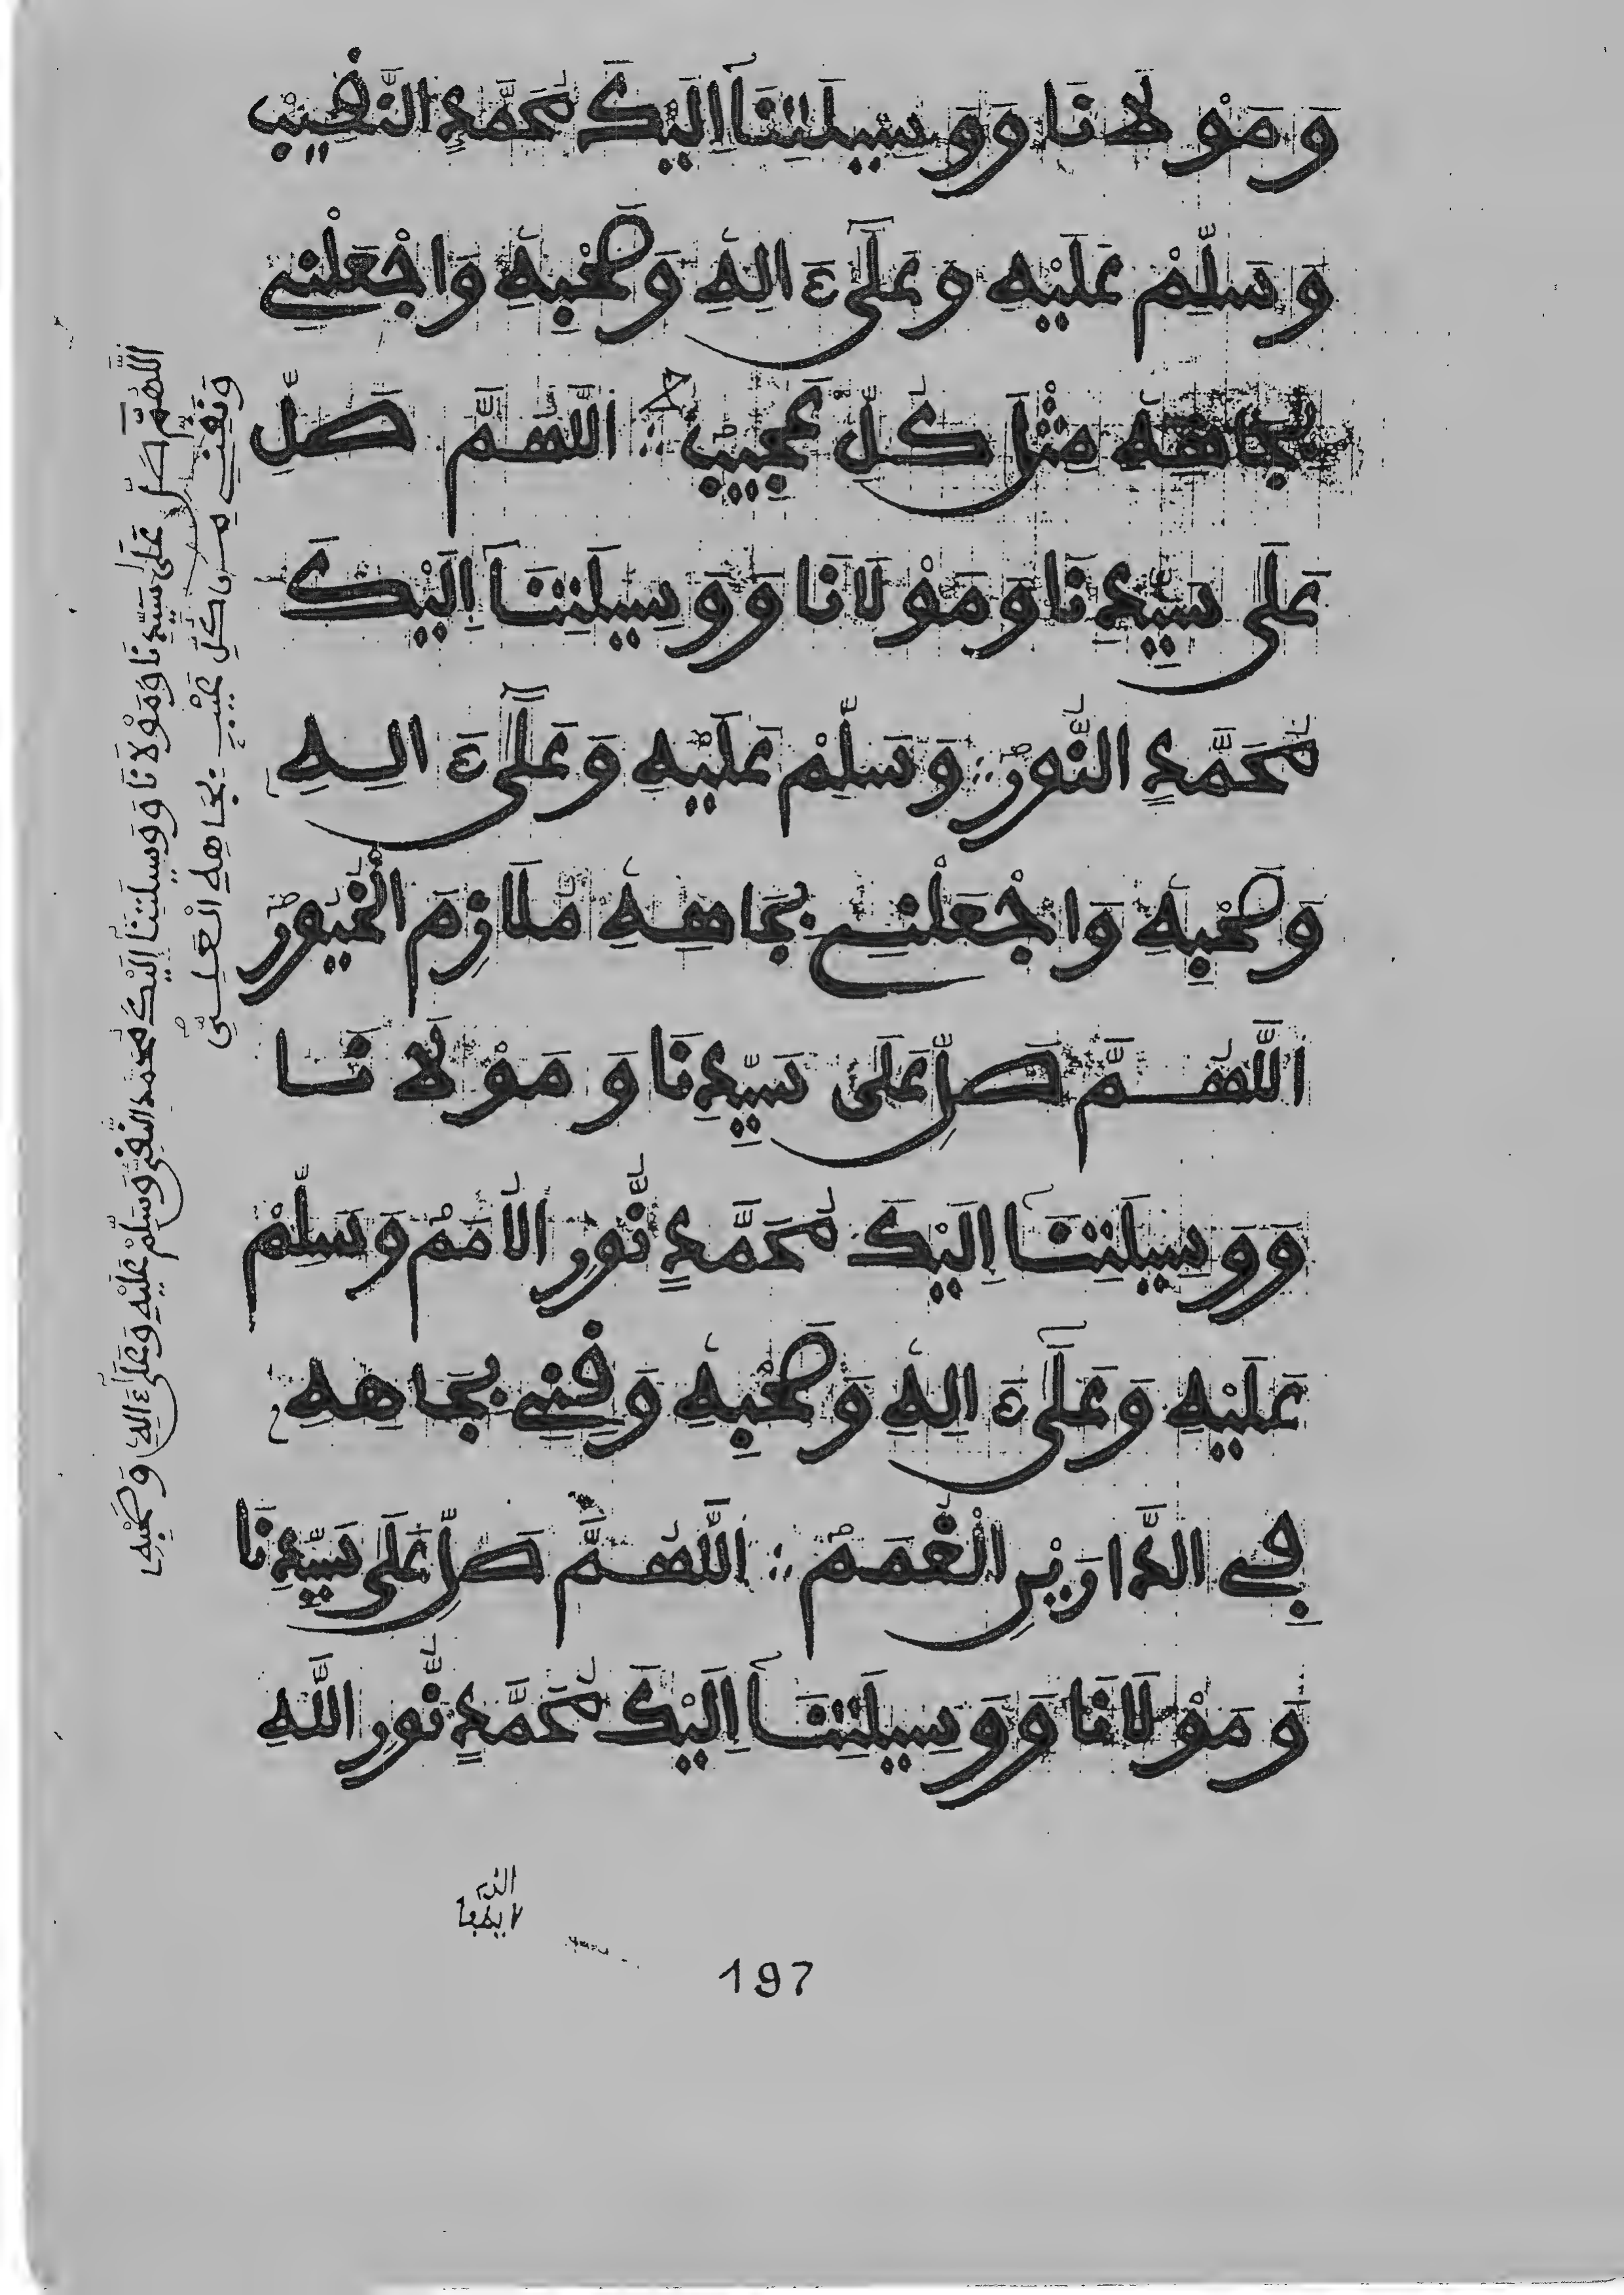 وَمَوْلَانَا وَوَسِيلَتِنَآ إِلَيْكَ مُحَمَّدٍ النَّقِيبِ
وَسَلِّمْ عَلَيْهِ وَعَلَىٰٓ ءَالِهِ وَصَحْبِهِ وَاجْعَلْنِي
بِجَاهِهِ مِثْلَ كُلِّ عَجِيبٍ ؞ اللَّهُمَّ صَلِّ
عَلَى سَيِّدِنَا وَمَوْلَانَا وَوَسِيلَتِنَآ إِلَيْكَ
مُحَمَّدٍ النُّورِ ؞ وَسَلِّمْ عَلَيْهِ وَعَلَىٰٓ ءَالِهِ
وَصَحْبِهِ وَاجْعَلْنِي بِجَاهِهِ مُلَازِمَ الْخُيُورِ
اللَّهُمَّ صَلِّ عَلَى سَيِّدِنَا وَمَوْلَانَا
وَوَسِيلَتِنَآ إِلَيْكَ مُحَمَّدٍ نُّورِ الْأُمَمِ وَسَلِّمْ
عَلَيْهِ وَعَلَىٰٓ ءَالِهِ وَصَحْبِهِ وَقِنِي بِجَاهِهِ
فِي الدَّارَيْنِ الْغُمَمَ ؞ اللَّهُمَّ صَلِّ عَلَى سَيِّدِنَا
وَمَوْلَانَا وَوَسِيلَتِنَآ إِلَيْكَ مُحَمَّدٍ نُّورِ اللَّهِ
اللَّهُمَّ صَلِّ عَلَى سَيِّدِنَا وَمَوْلَانَا وَوَسِيلَتِنَآ إِلَيْكَ مُحَمَّدٍ النَّقِيِّ وَسَلِّمْ عَلَيْهِ وَعَلَىٰٓ ءَالِهِ وَصَحْبِهِ
وَنَقِّنِي مِن كُلِّ عَيْبٍ بِجَاهِهِ الْعَلِيِّ
الذى
197